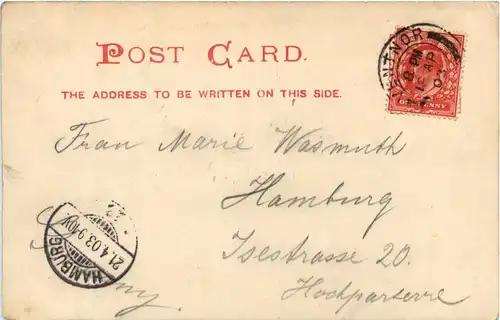 POST CARD.
THE ADDRESS TO BE WRITTEN ON THIS SIDE.
VENTNOR
8 PM
AP
03
ONE PENNY
Frau Marie Wasmuth
Hamburg
Isestrasse 20.
Hochparterre
HAMBURG
21.4.03.9-10V.